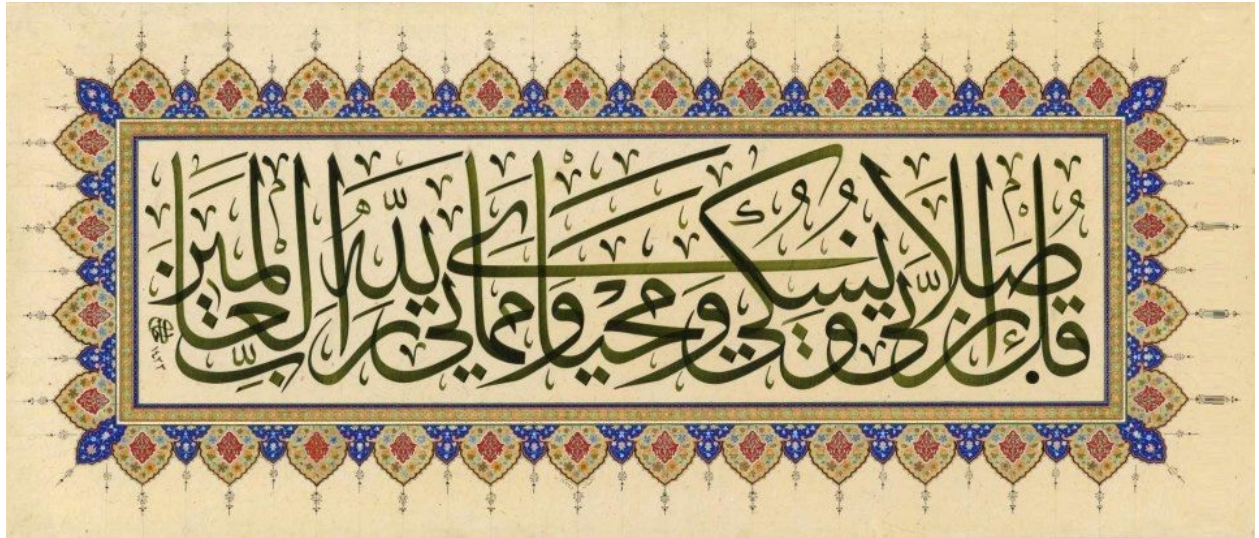 قُلْ إِنَّ صَلَاتِي وَنُسُكِي وَمَحْيَايَ وَمَمَاتِي لِلَّهِ رَبِّ الْعَالَمِينَ